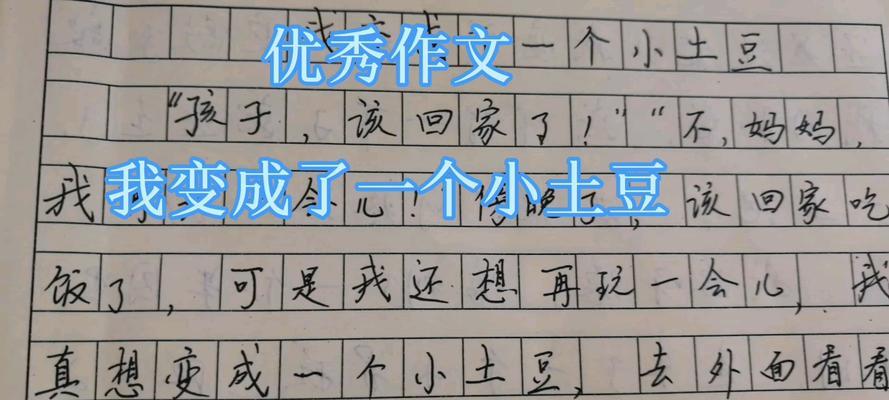 优秀作文
一个小土豆
“孩子，该回家了！”“不，妈妈，
我变成了一个小土豆
我会儿！傍晚了，该回家吃
饭了，可是我还想再玩一会儿，我
真想变成一个小土豆，去外面看看